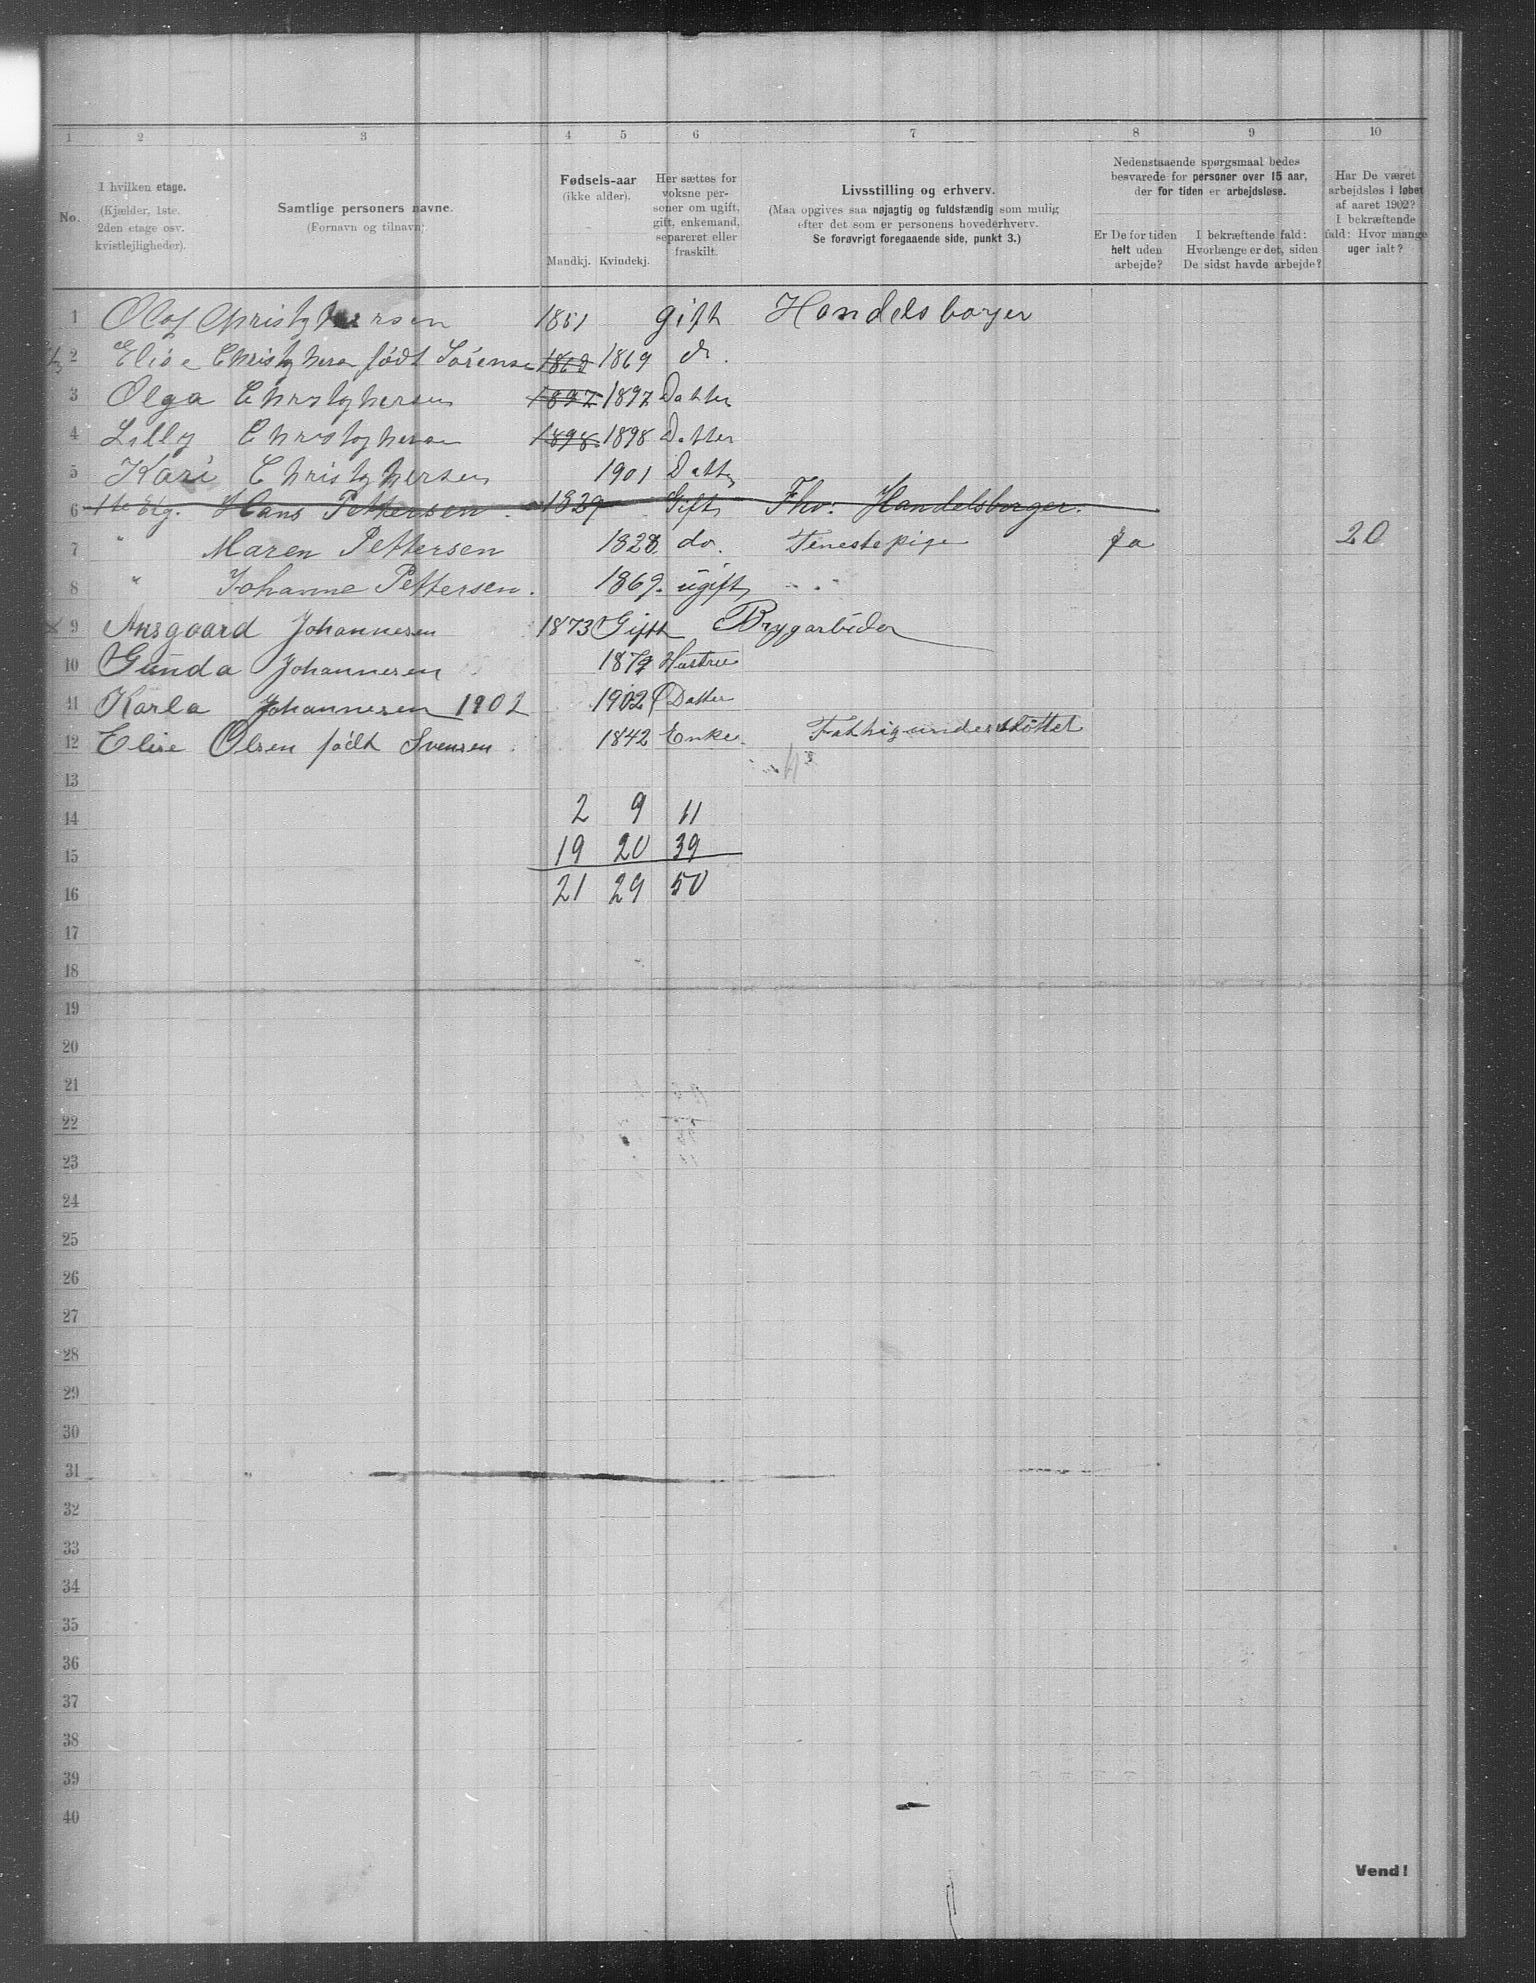 1 2 3 4 5 6 7 8 9 10
No.
I hvilken etage.
(Kjælder, 1ste.
2den etage osv.
kvistlejligheder).
Samtlige personers navne.
(Fornavn og tilnavn)
Fødsels-aar
(ikke alder).
Mandkj. Kvindekj.
Her sættes for
voksne per-
soner om ugift,
gift, enkemand,
separeret eller
fraskilt.
Livsstilling og erhverv.
(Maa opgives saa nøjagtig og fuldstændig som mulig
efter det som er personens hovederhverv.
Se forøvrigt foregaaende side, punkt 3.)
Nedenstaaende spørgsmaal bedes
besvarede for personer over 15 aar,
der for tiden er arbejdsløse.
Er De for tiden
helt uden
arbejde?
I bekræftende fald:
Hvorlænge er det, siden
De sidst havde arbejde?
Har De været
arbejdsløs i løbet
af aaret 1902?
I bekræftende
fald: Hvor mange
uger ialt?
1 Olof Christophersen 1851 gift Handelsborger
2 Elise født Sørensen 1862 1869 do.
3 Olga Christophersen 1897 1897 Datter
4 Lilly 1898 1898 Datter
5 Kari Christophersen 1901 Datter
6 1ste Etg. Hans Pettersen. 1829 Gift Fhv: Handelsborger.
7 " Maren Pettersen 1828. do. Tenestepige Ja 20
8 " Johanne Pettersen. 1869. ugift "
9 Ansgaard Johannesen 1873 Gift Brygarbeider
10 Gunda Johannesen 1879 Hustru
11 Karla Johannesen 1902 1902 Datter
12 Elise Olsen født Svensen 1842 Enke. Fattigunderstøttet
13
14 2 9 11
15 19 20 39
16 21 29 50
17
18
19
20
21
22
23
24
25
26
27
28
29
30
31
32
33
34
35
36
37
38
39
40
Vend!